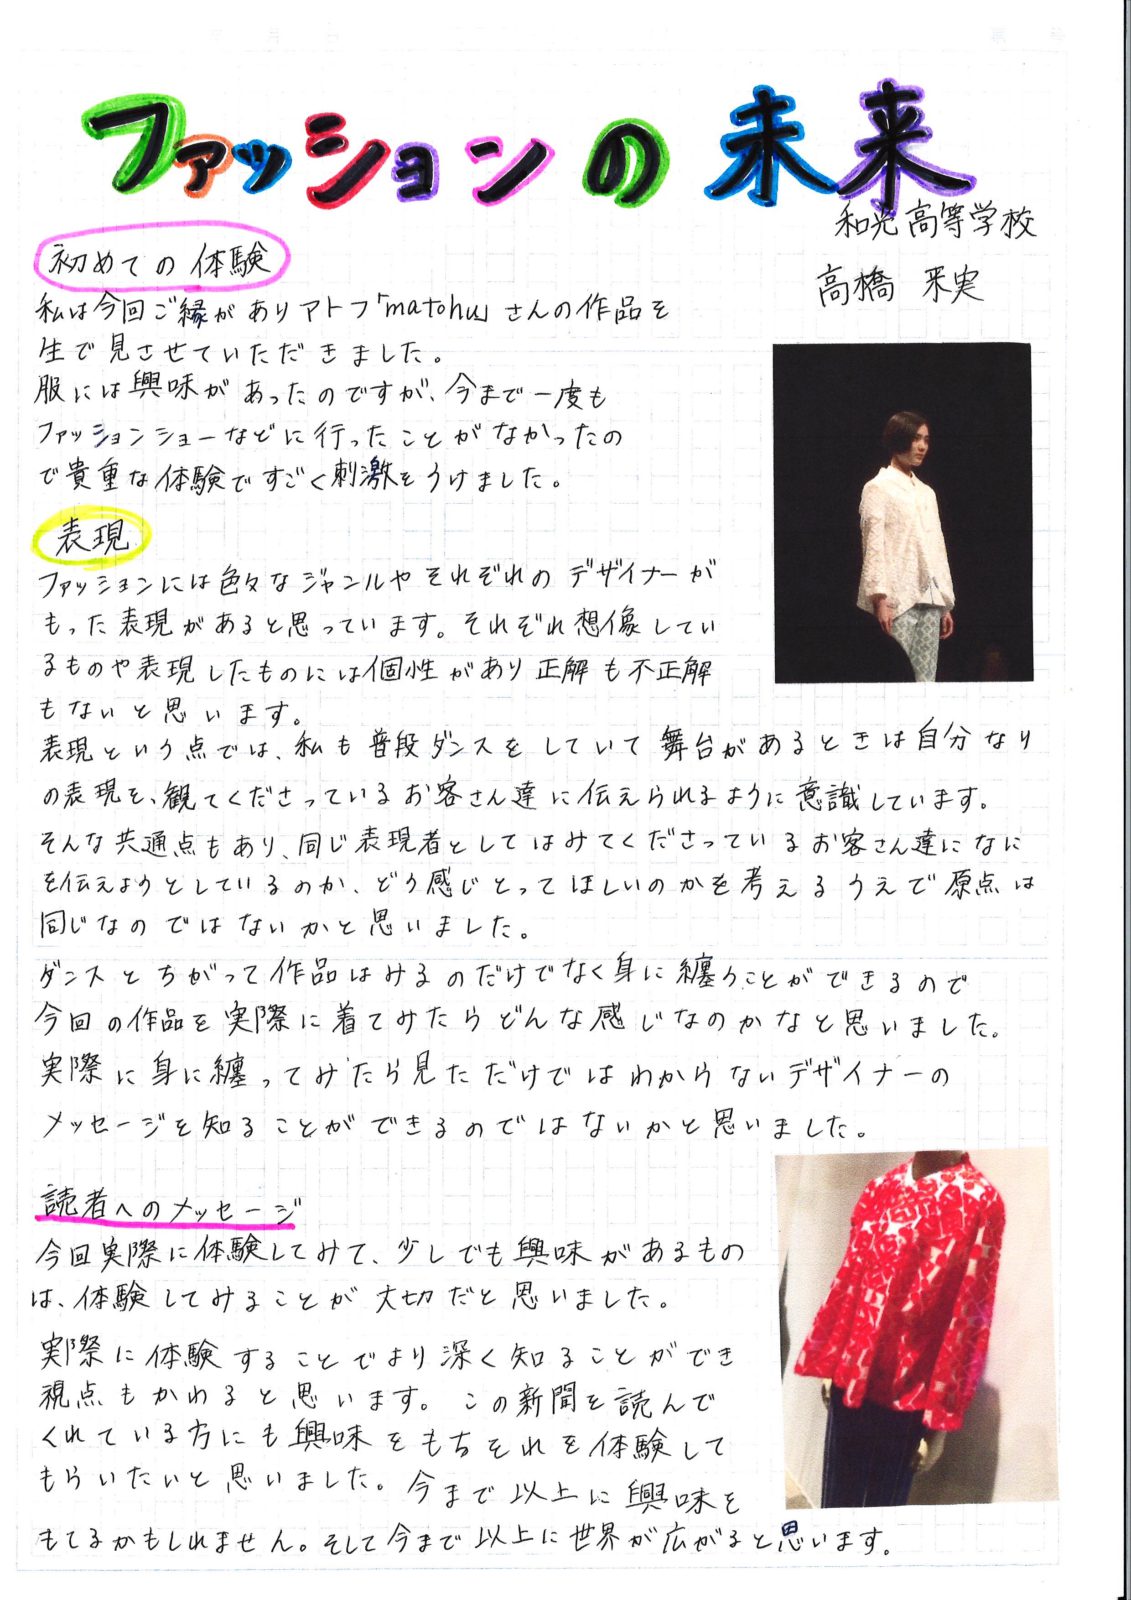 ファッションの未来
和光高等学校
高橋 釆実
初めての体験
私は今回ご縁がありアトフ「matohu」さんの作品を
生で見させていただきました。
服には興味があったのですが、今まで一度も
ファッションショーなどに行ったことがなかったの
で貴重な体験ですごく刺激をうけました。
表現
ファッションには色々なジャンルやそれぞれのデザイナーが
もった表現があると思っています。それぞれ想像してい
るものや表現したものには個性があり正解も不正解
もないと思います。
表現という点では、私も普段ダンスをしていて舞台があるときは自分なり
の表現を、観てくださっているお客さん達に伝えられるように意識しています。
そんな共通点もあり、同じ表現者としてはみてくださっているお客さん達になに
を伝えようとしているのか、どう感じとってほしいのかを考えるうえで原点は
同じなのではないかと思いました。
ダンスとちがって作品はみるのだけでなく身に纏うことができるので
今回の作品を実際に着てみたらどんな感じなのかなと思いました。
実際に身に纏ってみたら見ただけではわからないデザイナーの
メッセージを知ることができるのではないかと思いました。
読者へのメッセージ
今回実際に体験してみて、少しでも興味があるもの
は、体験してみることが大切だと思いました。
実際に体験することでより深く知ることができ
視点もかわると思います。この新聞を読んで
くれている方にも興味をもちそれを体験して
もらいたいと思いました。今まで以上に興味を
もてるかもしれません。そして今まで以上に世界が広がると思います。